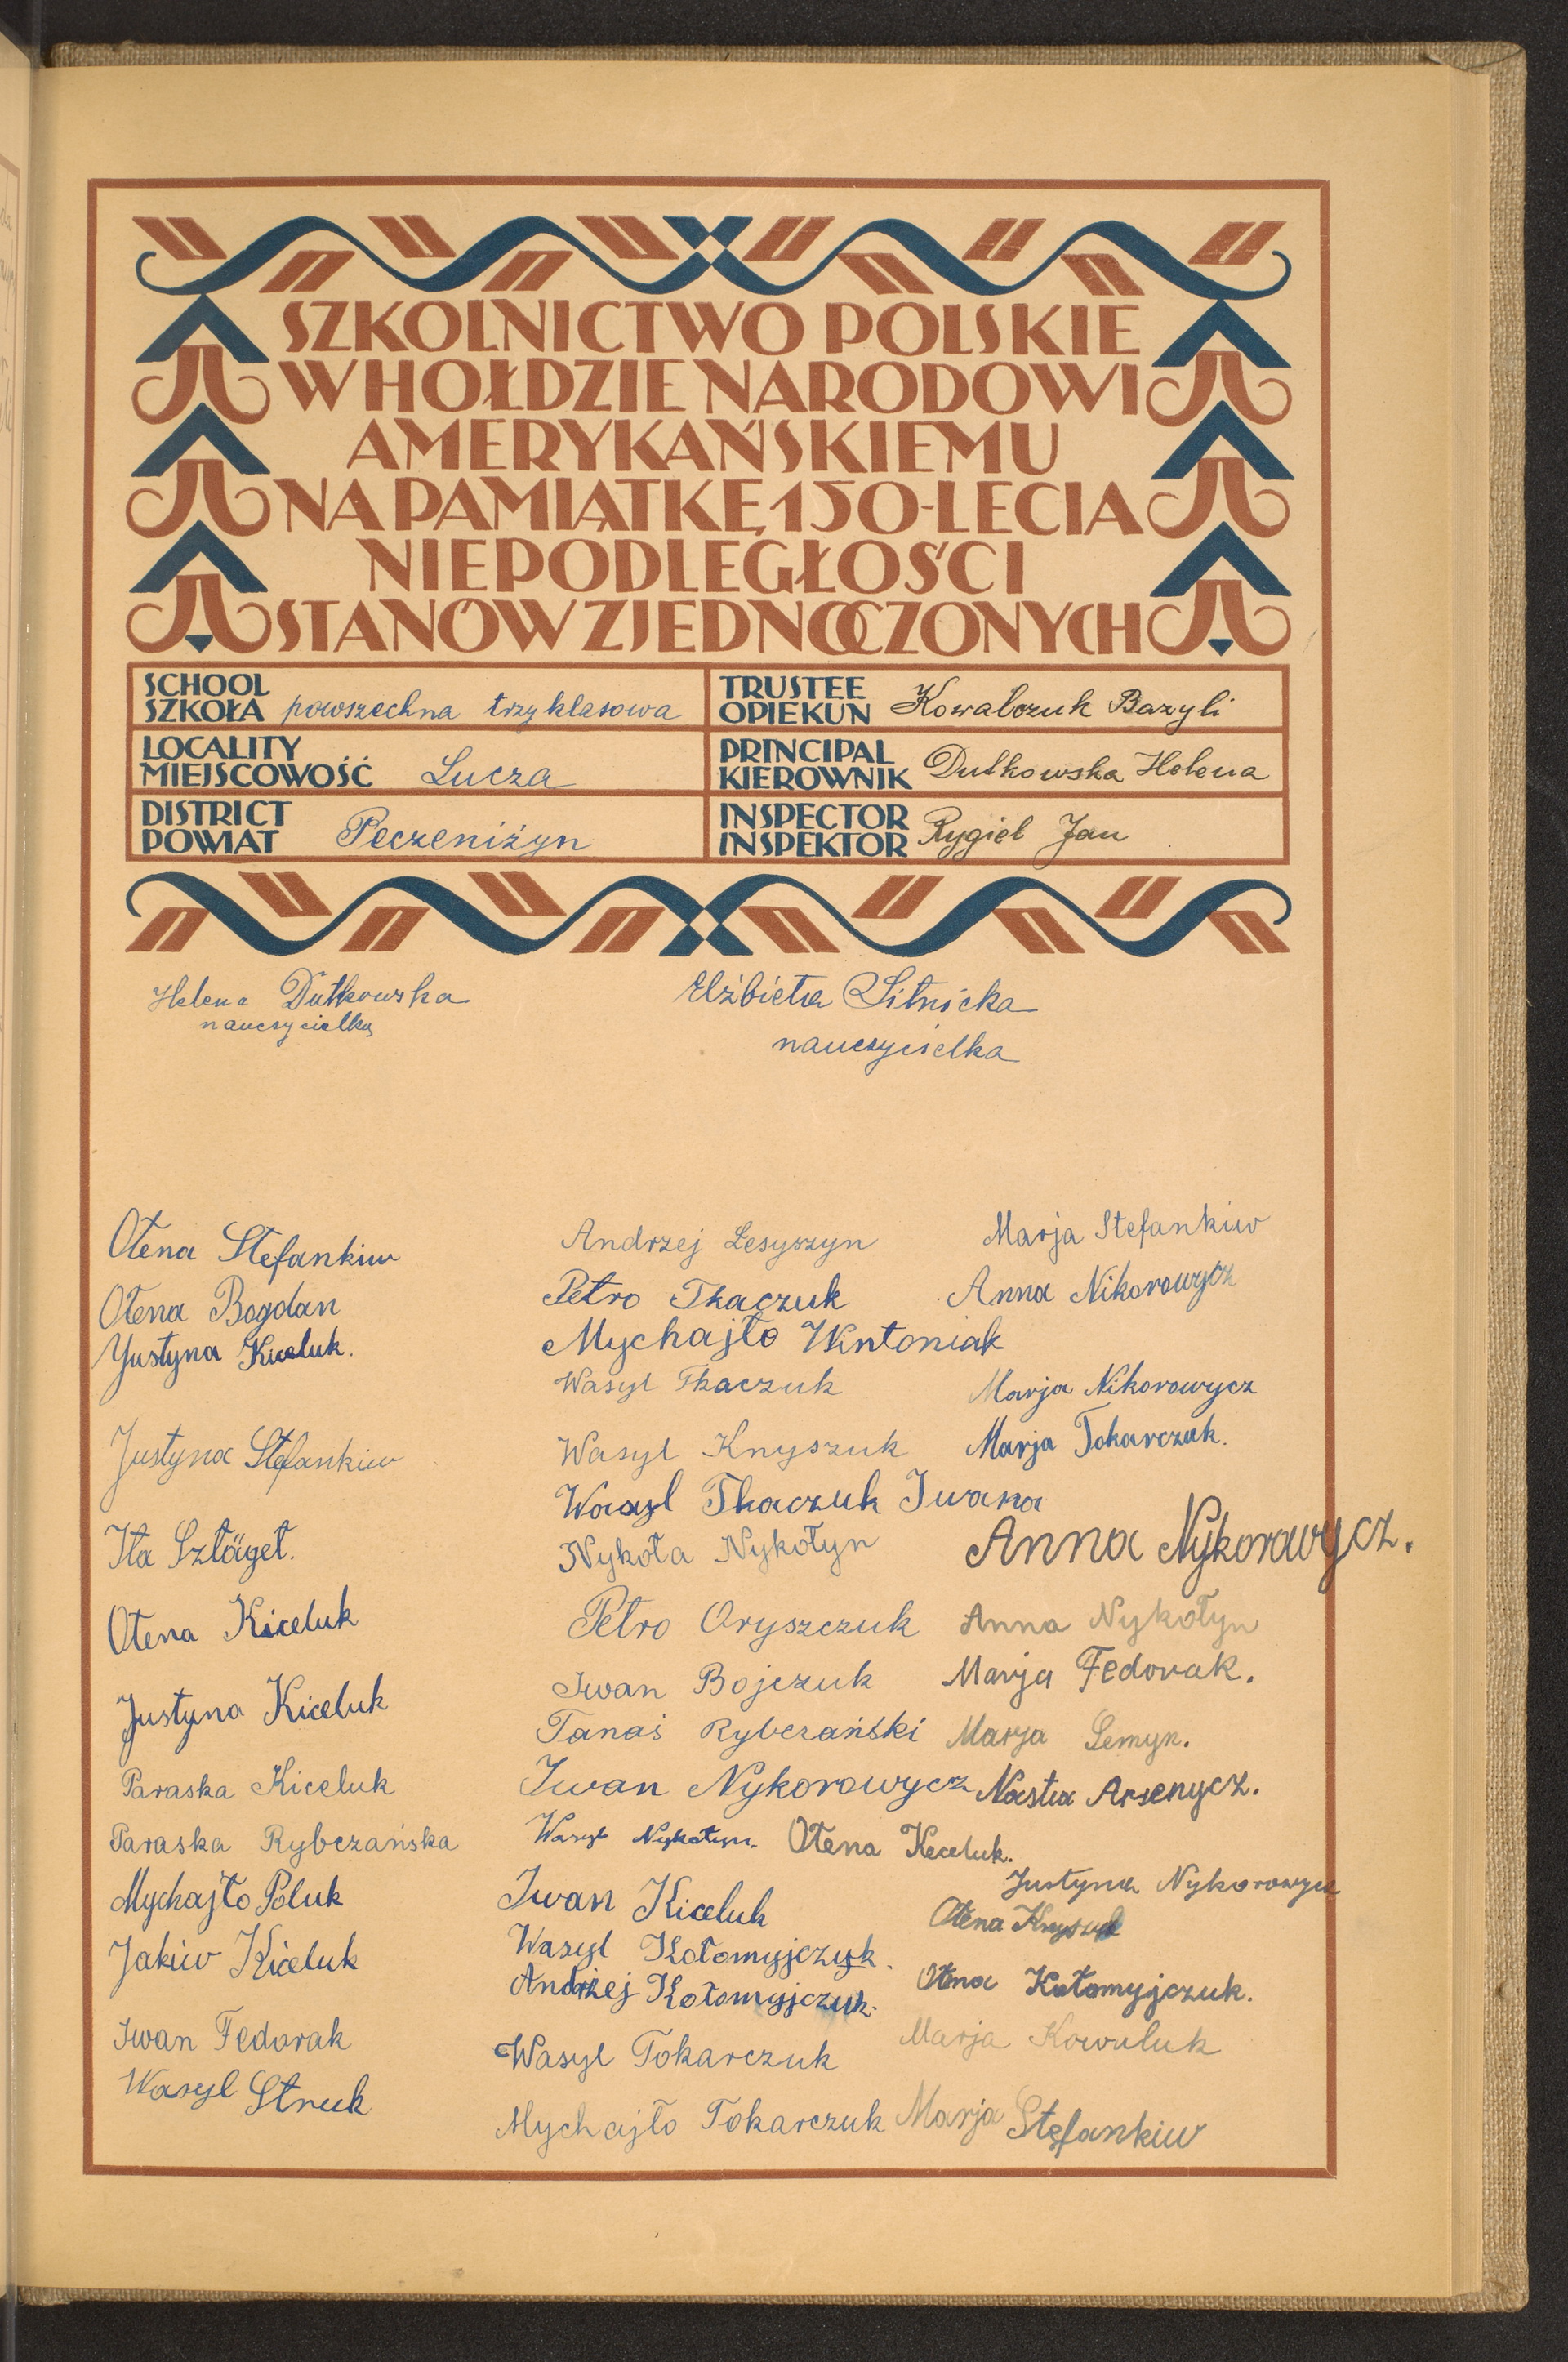 SZKOLNICTWO POLSKIE
W HOŁDZIE NARODOWI
AMERYKAŃSKIEMU
NA PAMIĄTKĘ 150-LECIA
NIEPODLEGŁOŚCI
STANÓW ZJEDNOCZONYCH
SCHOOL
SZKOŁA powszechna trzyklasowa
TRUSTEE
OPIEKUN Kowalczuk Bazyli
LOCALITY
MIEJSCOWOŚĆ Lucza
PRINCIPAL
KIEROWNIK Dutkowska Helena
DISTRICT
POWIAT Peczeniżyn
INSPECTOR
INSPEKTOR Rygiel Jan
Helena Dutkowska
nauczycielka
Elżbieta Sitnicka
nauczycielka
Ołena Stefankiw
Ołena Bogdan
Justyna Kiceluk.
Justyna Stefankiw
Ita Sztäget.
Ołena Kiceluk
Justyna Kiceluk
Paraska Kiceluk
Paraska Rybczańska
Mychajło Poluk
Jakiw Kiceluk
Iwan Fedorak
Wasyl Struk
Andrzej Lesyszyn
Petro Tkaczuk
Mychajło Wintoniak
Wasyl Tkaczuk
Wasyl Knyszuk
Wasyl Tkaczuk Iwana
Nykoła Nykołyn
Petro Oryszczuk
Iwan Bojczuk
Tanaś Rybczański
Iwan Nykorowycz
Wasyl Nykołyn.
Iwan Kiceluk
Wasyl Kołomyjczuk.
Andrzej Kołomyjczuk.
Wasyl Tokarczuk
Mychajło Tokarczuk
Marja Stefankiw
Anna Nikorowycz
Marja Nikorowycz
Marja Tokarczuk.
Anna Nykorowycz.
Anna Nykołyn
Marja Fedorak.
Marja Semyn.
Nastia Arsenycz.
Ołena Keceluk.
Justyna Nykorowycz
Ołena Knyszuk
Ołena Kołomyjczuk.
Marja Kowaluk
Marja Stefankiw